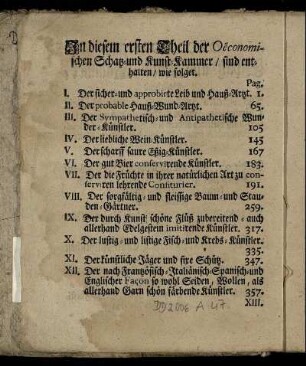 In diesem ersten Theil der Oëconomi-
schen Schatz- und Kunst-Kammer / sind ent-
halten / wie folget.
Pag.
I. Der sicher- und approbirte Leib und Hauß-Artzt. 1.
II. Der probable Hauß-Wund-Artzt. 65.
III. Der Sympathetisch- und Antipathetische Wun-
der-Künstler. 105
IV. Der liebliche Wein-Künstler. 145
V. Der scharff saure Eßig-Künstler. 167
VI. Der gut Bier conservirende Künstler. 183.
VII. Der die Früchte in ihrer natürlichen Art zu con-
serviren lehrende Confiturier. 191.
VIII. Der sorgfältig- und fleissige Baum- und Stau-
den-Gärtner. 259.
IX. Der durch Kunst schöne Flüß zubereitend- auch
allerhand Edelgestein imitirende Künstler. 317.
X. Der lustig- und listige Fisch- und Krebs-Künstler.
335.
XI. Der künstliche Jäger und fixe Schütz. 347.
XII. Der nach Frantzösisch-Italiänisch-Spanisch- und
Englischer Façon so wohl Seiden, Wollen, als
allerhand Garn schön färbende Künstler. 357.
XIII.